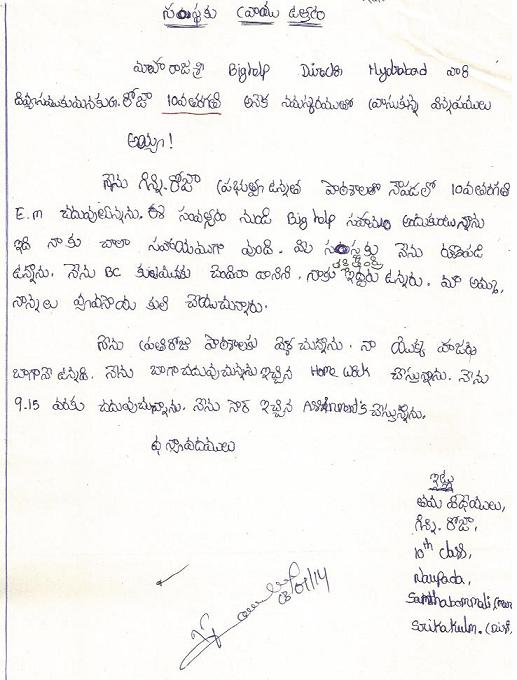 సంస్థకు వ్రాయు ఉత్తరం
మహారాజశ్రీ Bighelp Director Hyderabad వారి
దివ్యసముఖమునకు గి. రోజా 10వతరగతి అనేక నమస్కారములతో వ్రాసుకున్న విన్నపములు
అయ్యా!
నేను గిన్ని. రోజా ప్రభుత్వ ఉన్నత పాఠశాలలో నౌపడలో 10వతరగతి
E.m చదువుచున్నాను. ఈ సంవత్సరం నుండి Big help సహాయం అందుకుంటున్నాను
ఇది నాకు చాలా సహాయముగా వుంది. మీ సంస్థకు నేను రుణపడి
ఉన్నాను. నేను BC కులమునకు చెందిన దానిని. నాకు ఇద్దరు ఉన్నారు. మా అమ్మ,
నాన్నలు వ్యవసాయ కూలి చేయుచున్నారు.
నేను ప్రతిరోజు పాఠశాలకు వెళ్లచున్నాను. నా యొక్క హాజరు
బాగానే ఉన్నది. నేను బాగా చదువుచున్నాను ఇచ్చిన Home Work చేస్తున్నాను. నేను
9.15 వరకు చదువుచున్నాను. నేను సార్ ఇచ్చిన Assignment's చేస్తున్నాను.
ధన్యవాదములు
ఇట్లు
తమ విధేయులు,
గిన్ని. రోజా,
10th class,
Naupada,
Santhabommali (man
Srikakulm. (Dist,
/01/14